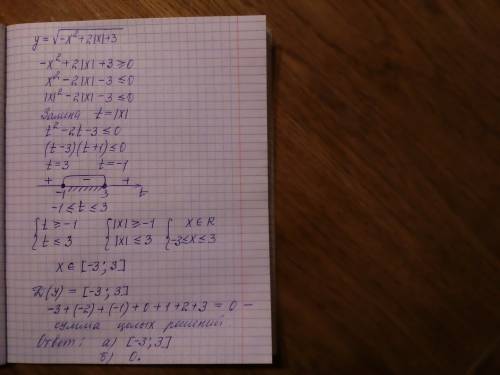 y = √(-x² + 2|x| + 3)
-x² + 2|x| + 3 ≥ 0
x² - 2|x| - 3 ≤ 0
|x|² - 2|x| - 3 ≤ 0
Замена t = |x|
t² - 2t - 3 ≤ 0
(t-3)(t+1) ≤ 0
t = 3 t = -1
+ - +
-1 3 t
-1 ≤ t ≤ 3
{ t ≥ -1 { |x| ≥ -1 { x ∈ R
{ t ≤ 3 { |x| ≤ 3 { -3 ≤ x ≤ 3
x ∈ [-3; 3]
D(y) = [-3; 3]
-3 + (-2) + (-1) + 0 + 1 + 2 + 3 = 0 -
сумма целых решений
Ответ: а) [-3; 3]
б) 0.